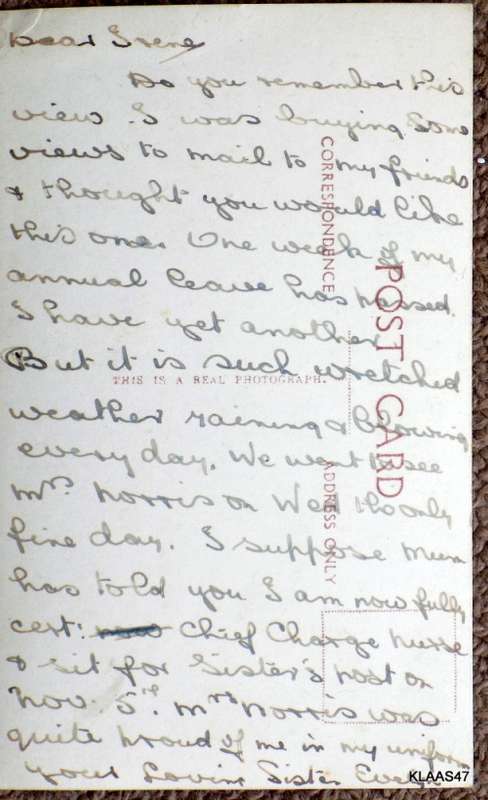 Dear Irene
Do you remember this
view. I was buying some
views to mail to my friends
& thought you would like
this one. One week of my
annual leave has passed.
I have yet another
But it is such wretched
weather raining & blowing
every day. We went to see
Mrs Norris on Wed the only
fine day. I suppose Mum
has told you I am now fully
cert: Chief Charge nurse
& sit for Sister's post on
Nov. 5th. Mrs Norris was
quite proud of me in my uniform
your Loving Sister
CORRESPONDENCE
POST CARD
THIS IS A REAL PHOTOGRAPH.
ADDRESS ONLY
KLAAS47